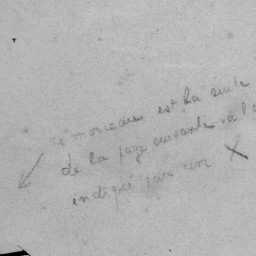 ce morceau est la suite
de la page suivante
indiqué par un X